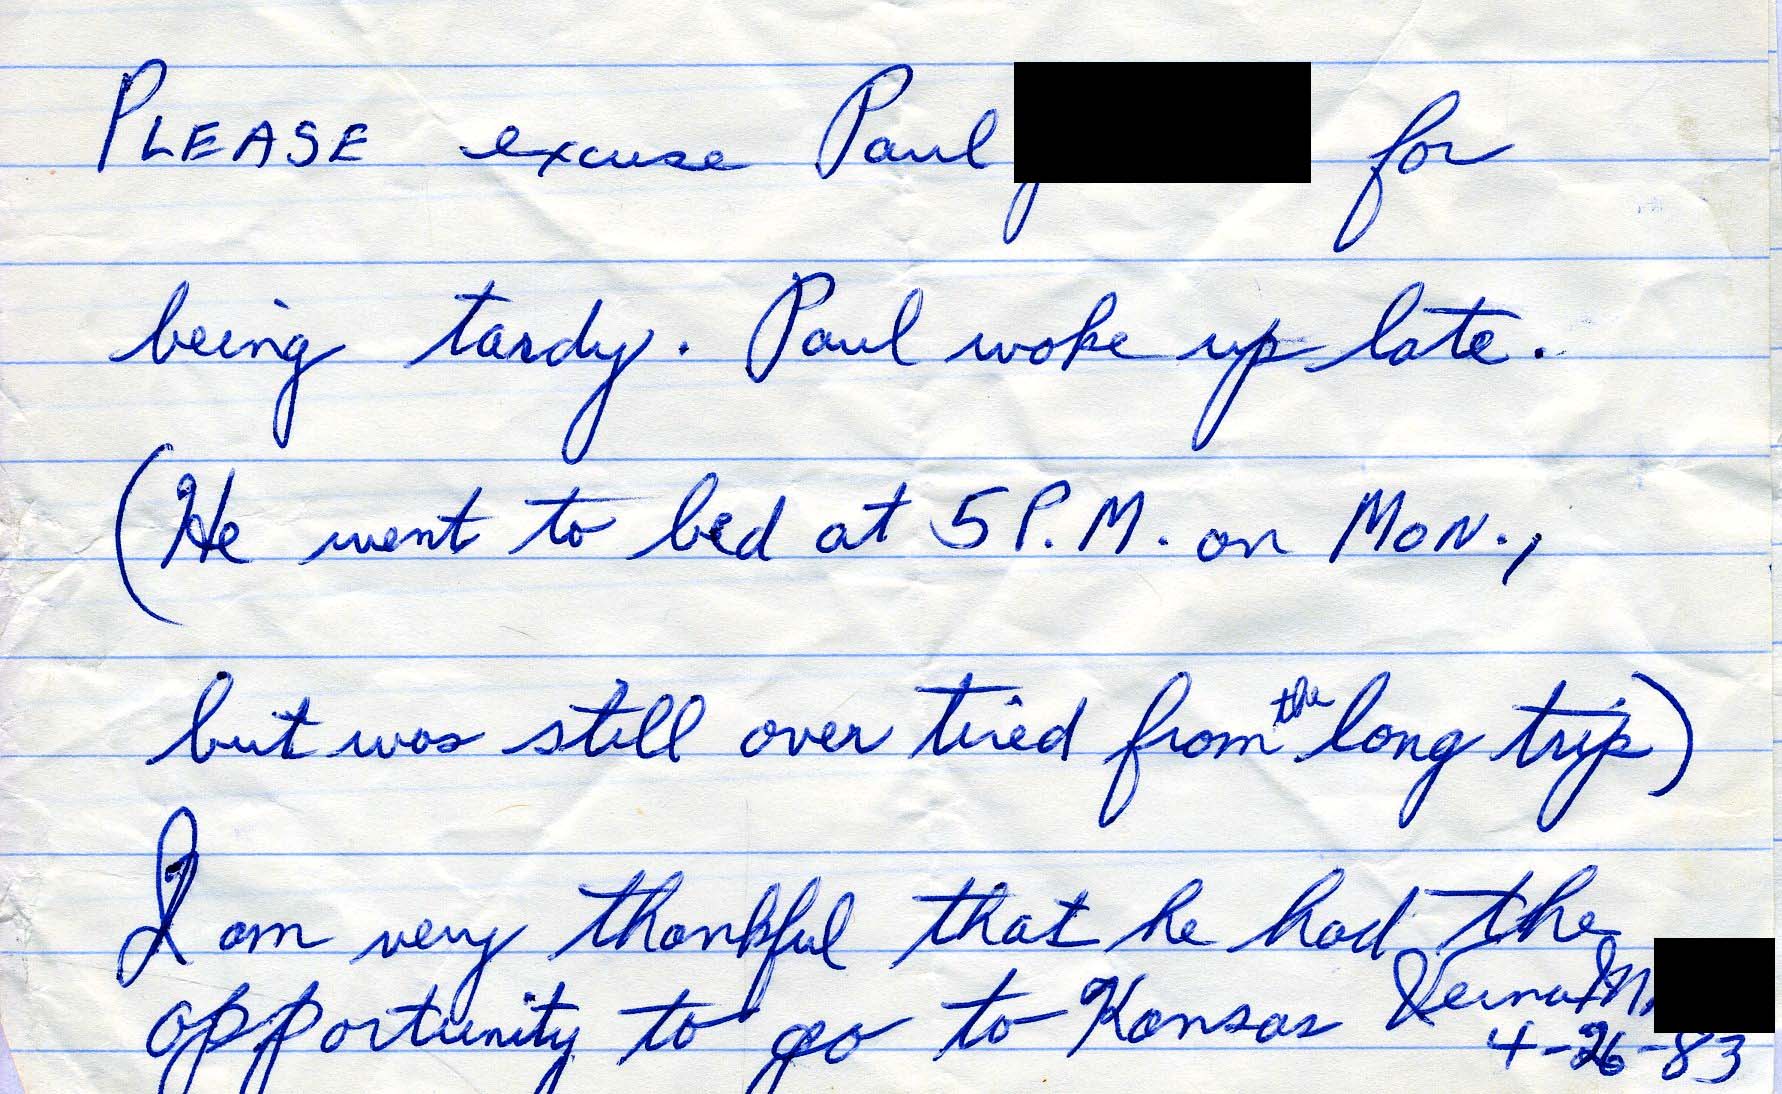 PLEASE excuse Paul for
being tardy. Paul woke up late.
(He went to bed at 5 P.M. on MON.,
but was still over tired from the long trip)
I am very thankful that he had the
opportunity to go to Kansas Verna M
4-26-83